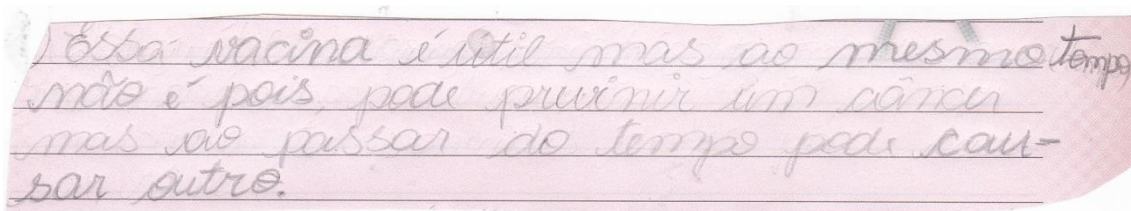 essa vacina é útil mas ao mesmo tempo
não é pois pode pruvinir um câncer
mas ao passar do tempo pode cau-
sar outro.